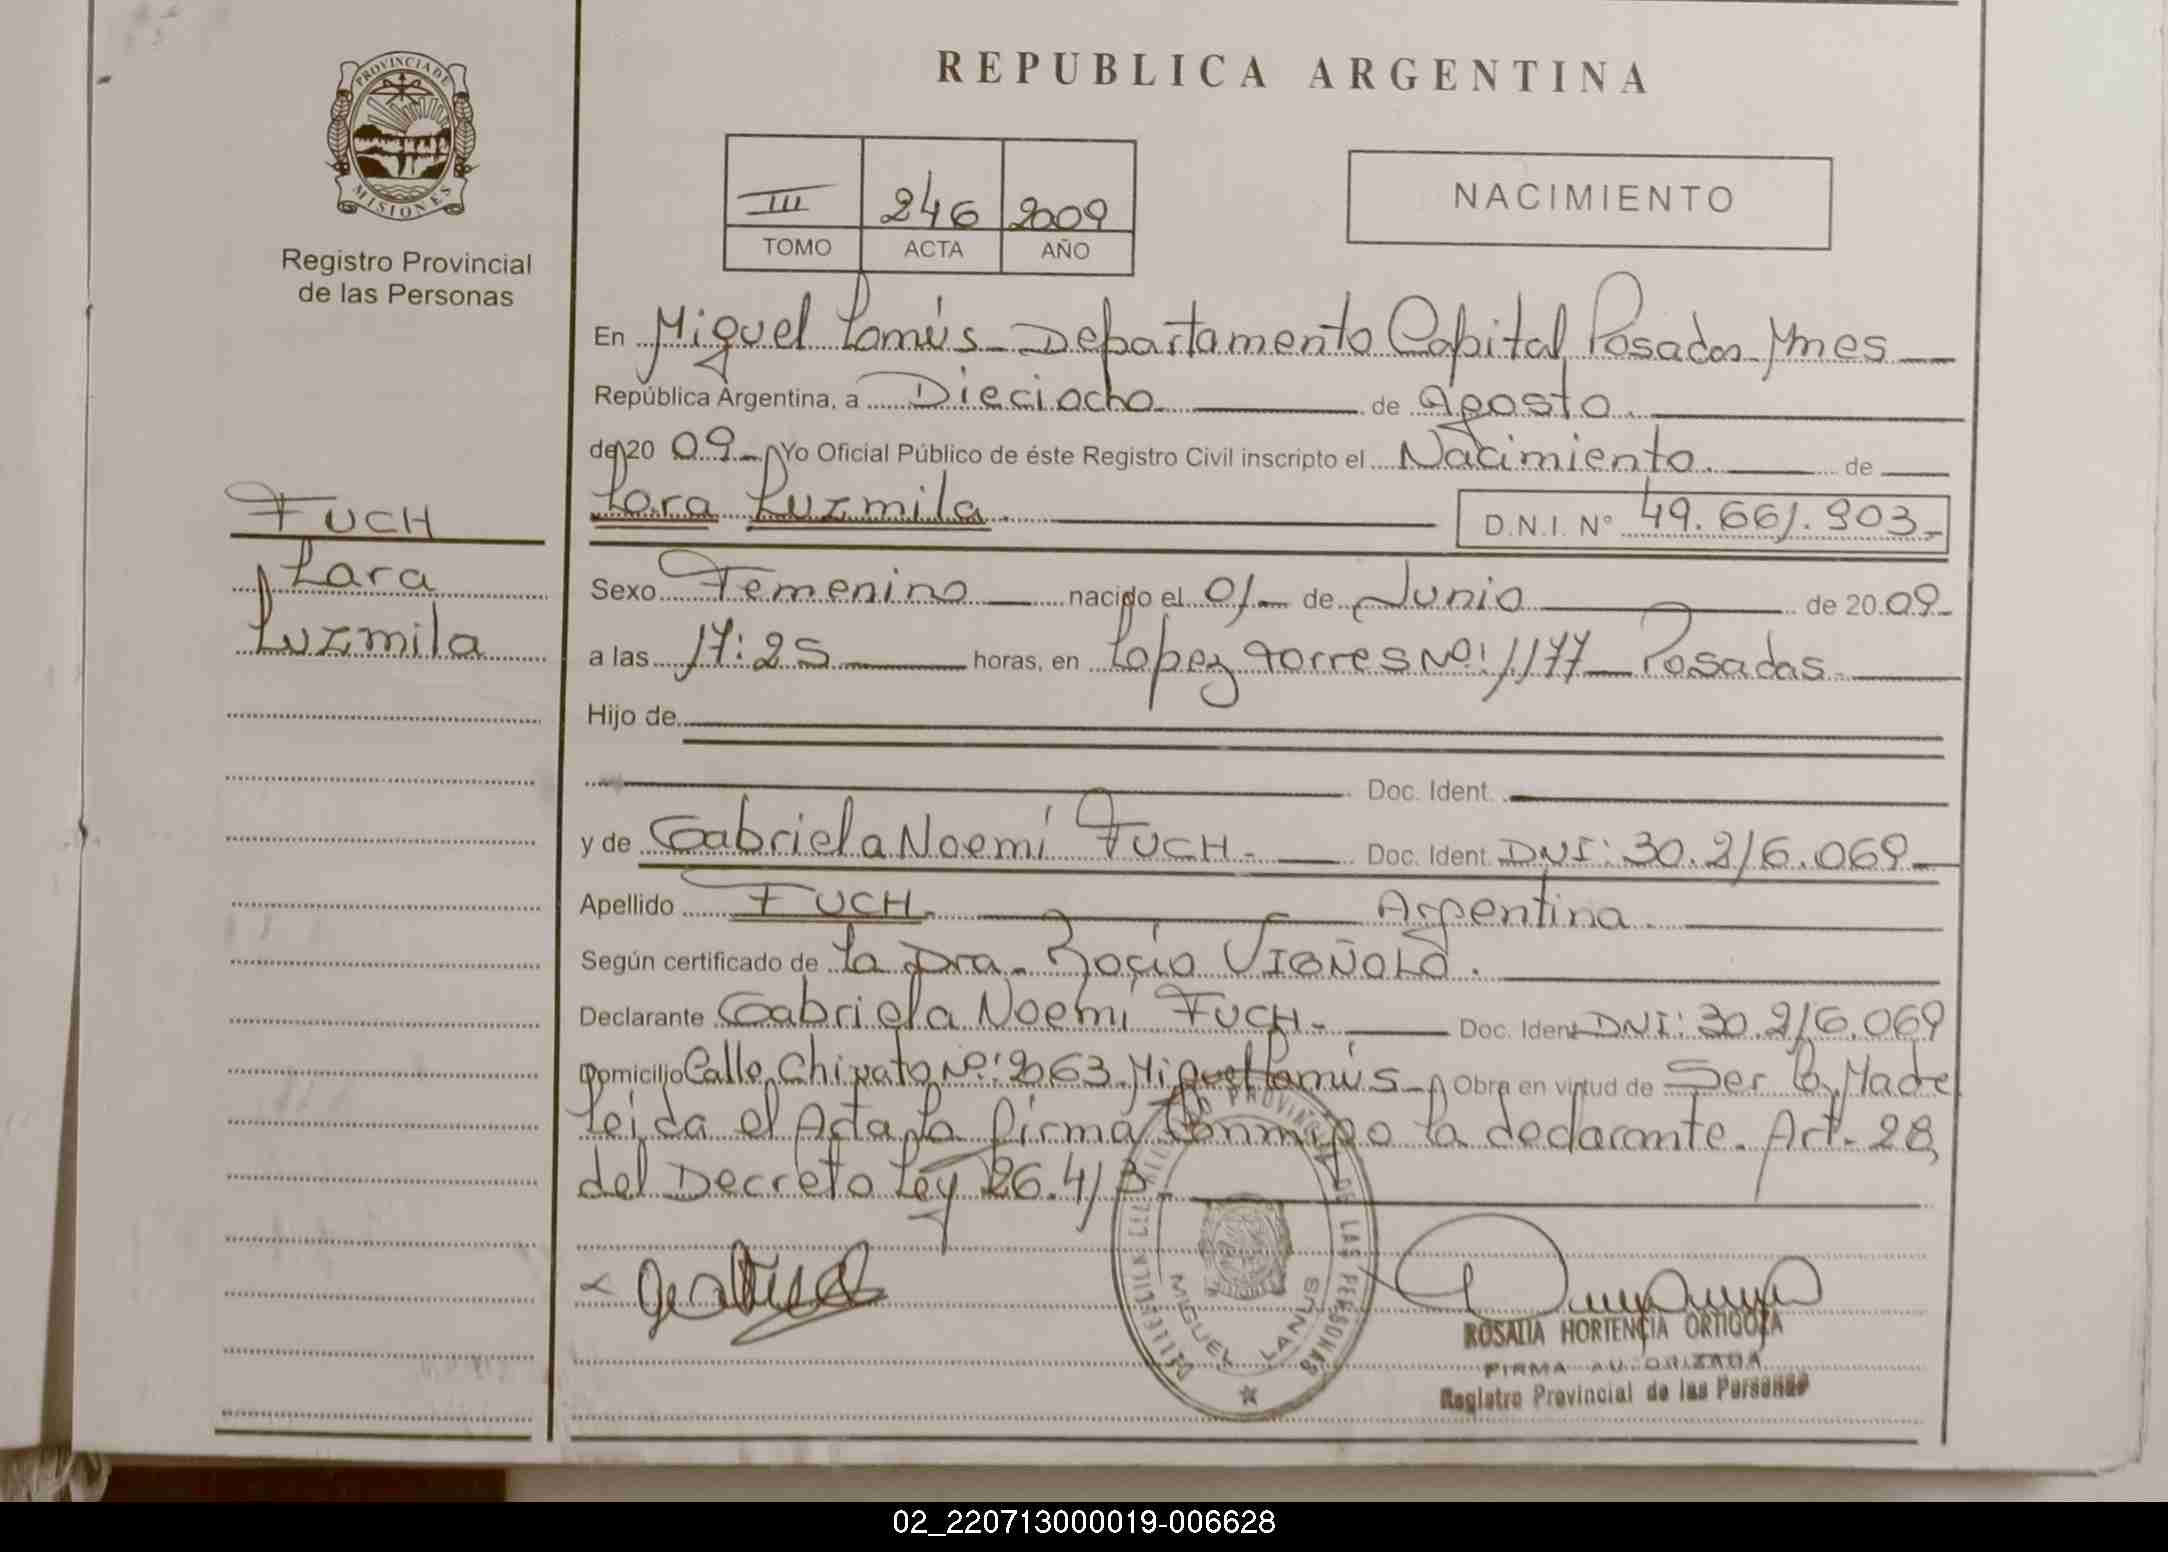 PROVINCIA DE
MISIONES
Registro Provincial
de las Personas
FUCH
Lara
Luzmila
REPUBLICA ARGENTINA
III 246 2009
TOMO ACTA AÑO
NACIMIENTO
En Miguel Lanús - Departamento Capital Posadas Mnes
República Argentina, a Dieciocho de Agosto
de 20 09 - Yo Oficial Público de éste Registro Civil inscripto el Nacimiento de
Lara Luzmila. D.N.I. N° 49.661.903-
Sexo Femenino nacido el 01- de Junio de 20 09-
a las 17:25 horas, en Lopez Torres Nº: 1177 - Posadas.
Hijo de
Doc. Ident.
y de Gabriela Noemí FUCH - Doc. Ident. DNI: 30.216.069-
Apellido FUCH. Argentina.
Según certificado de la Dra. Rocío VIGÑOLO.
Declarante Gabriela Noemí FUCH - Doc. Ident DNI: 30.216.069
Domicilio Calle Nº: 2063 Miguel Lanús - Obra en virtud de Ser la Made
Leida el Acta la firma Conmigo la declarante. Art. 28,
del Decreto Ley 26.413.
REGISTRO PROVINCIAL DE LAS PERSONAS
MIGUEL LANUS
ROSALIA HORTENCIA ORTIGOZA
FIRMA AUTORIZADA
Registro Provincial de las Personas
02_220713000019-006628